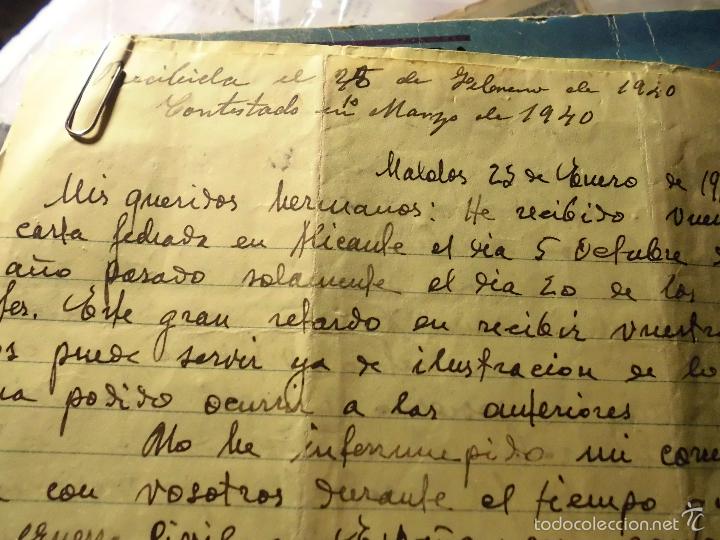 Recibida el 25 de Febrero de 1940
Contestado 1º Marzo de 1940
Malolos 25 de Enero de 19
Mis queridos hermanos: He recibido vues
carta fechada en Alicante el dia 5 Octubre
año pasado solamente el dia 20 de los
tes. Este gran retardo en recibir vuestra
os puede servir ya de ilustracion de lo
ha podido ocurrir a las anteriores
No he interrumpido mi corres
con vosotros durante el tiempo
guerra Civil
todocoleccion.net